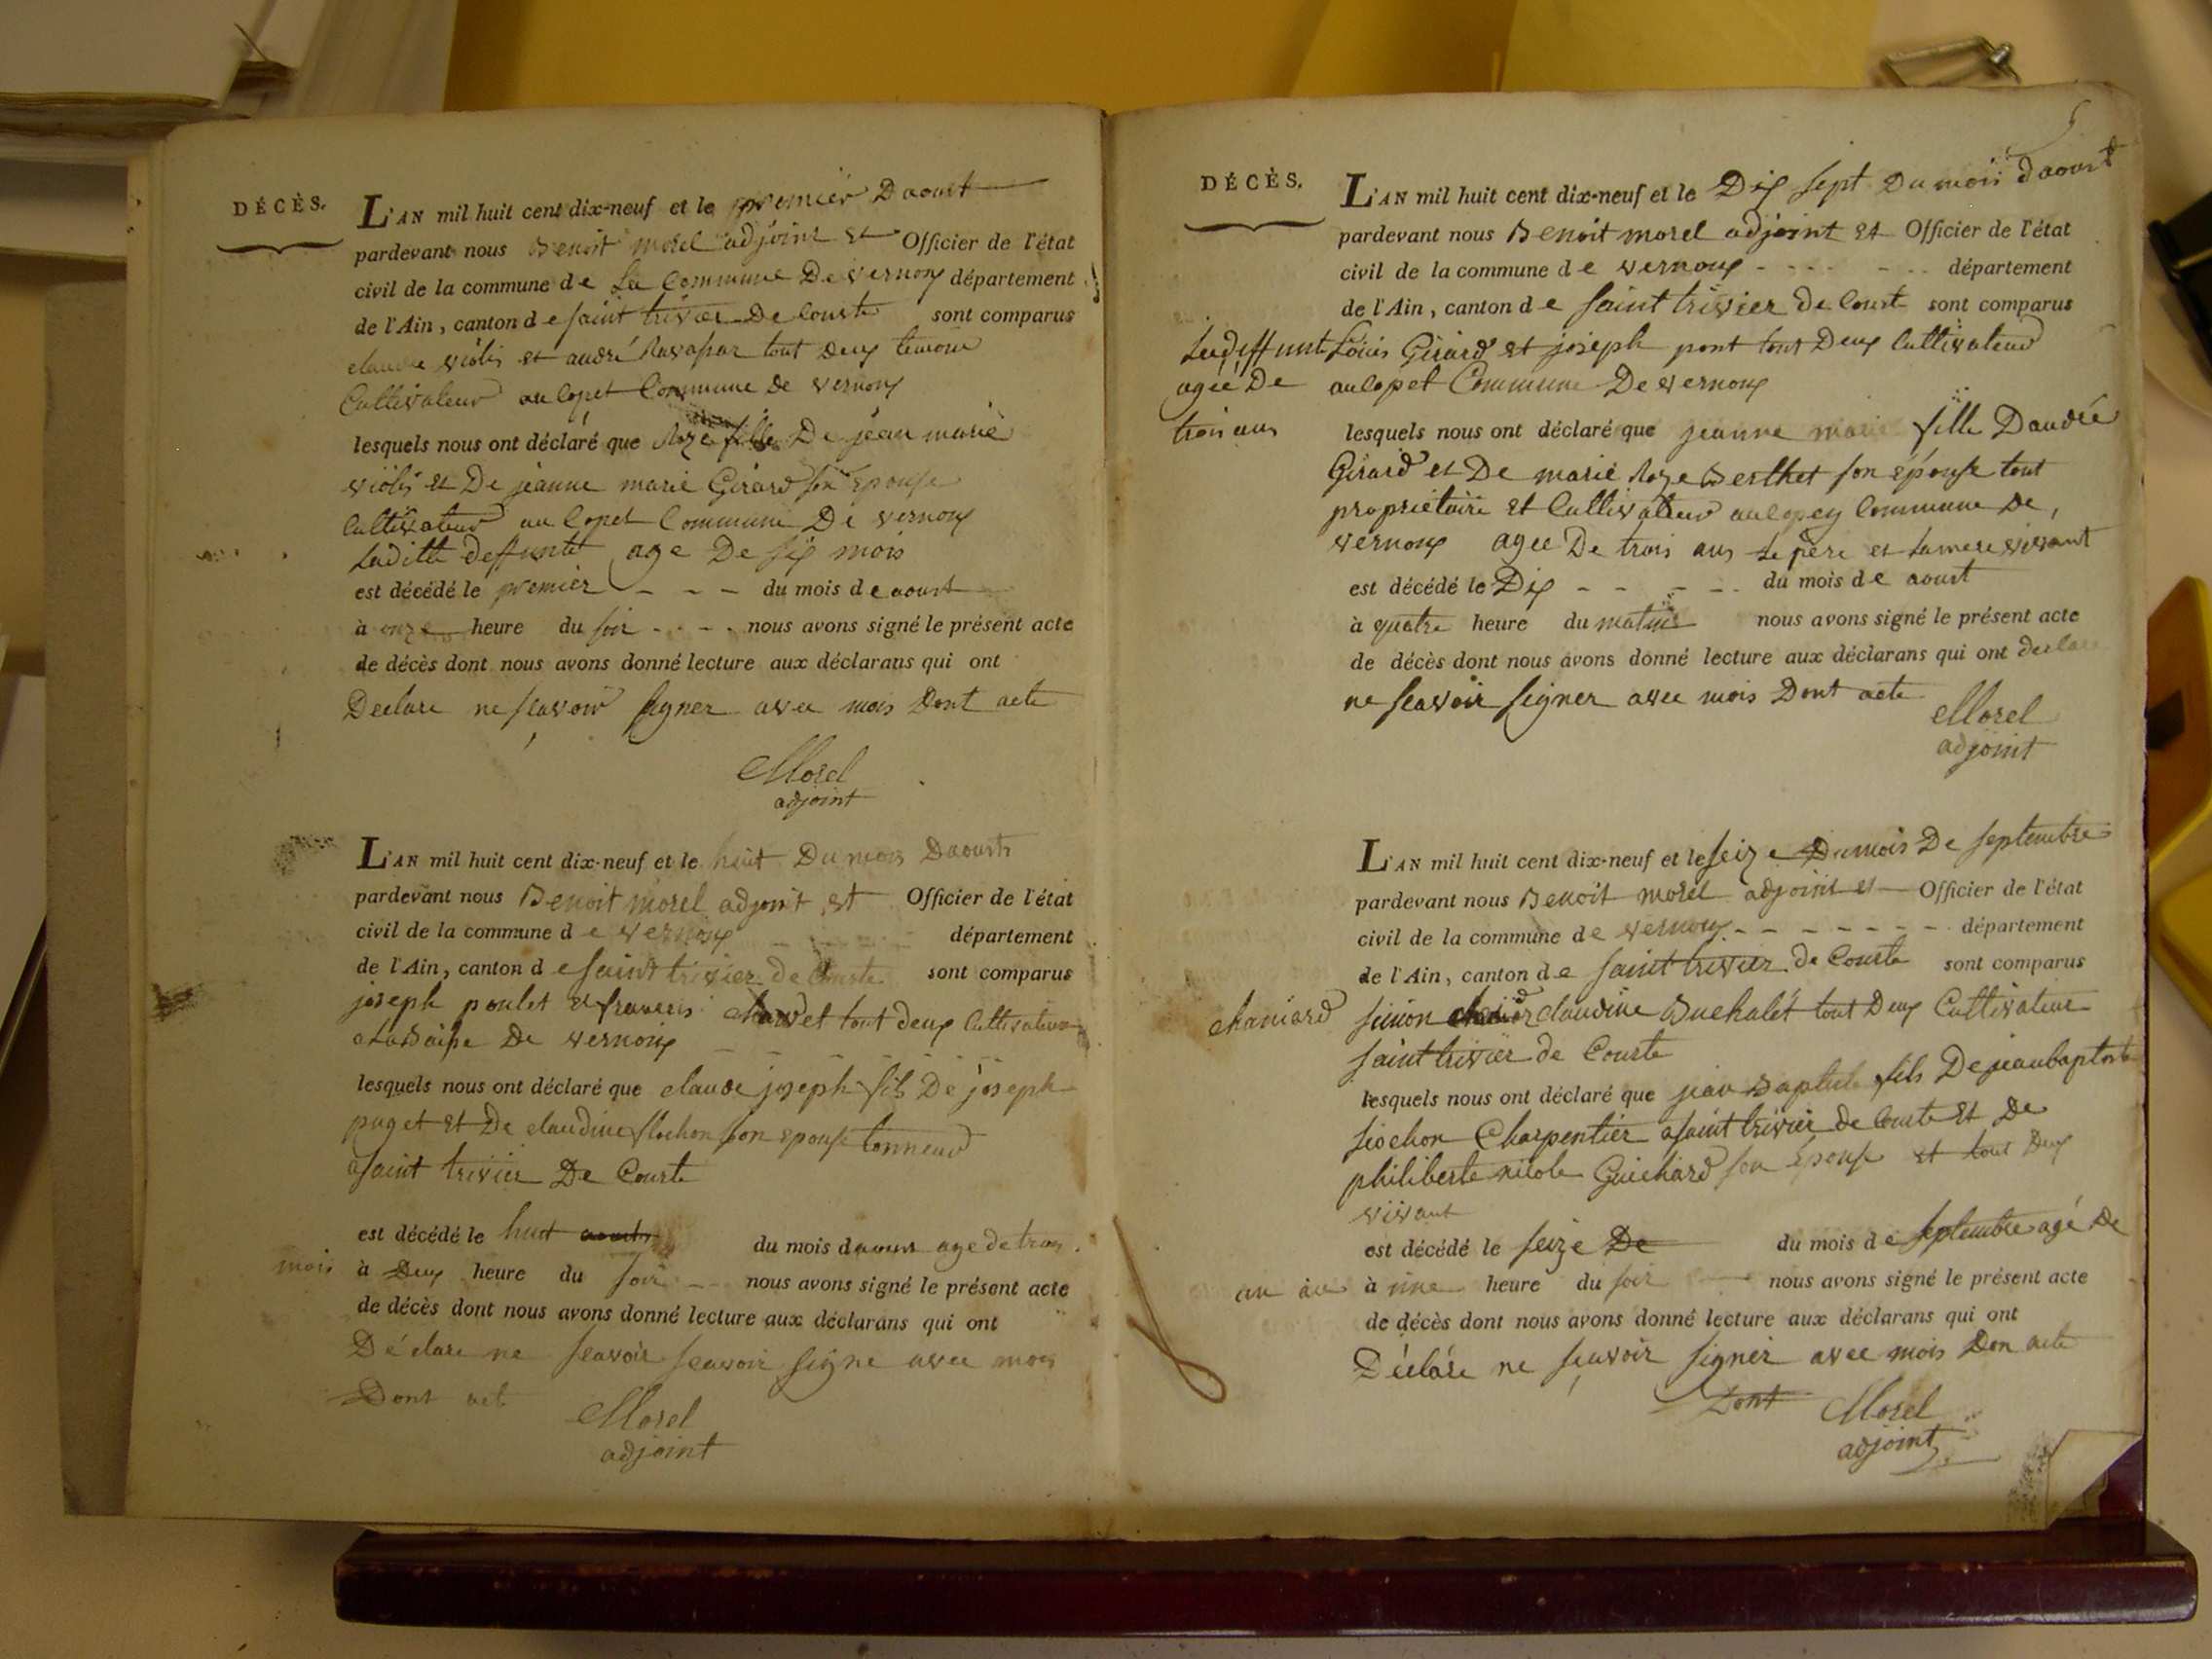 DÉCÈS.
L'AN mil huit cent dix-neuf et le premier Daoust
pardevant nous Benoit morel adjoint et Officier de l'état
civil de la commune de La Commune De vernoux département
de l'Ain, canton de saint trivier De Courte sont comparus
claude violis et andré tout deux temoin
Cultivateur au Commune de vernoux
lesquels nous ont déclaré que Roze fille De jean marie
violis et De jeanne marie Girard son Epouse
Cultivateur au Commune De vernoux
Laditte deffunte age De six mois
est décédé le premier - - - du mois de aoust
à onze heure du soir - - - - nous avons signé le présent acte
de décès dont nous avons donné lecture aux déclarans qui ont
Declare ne scavoir signer avec mois Dont acte
Morel
adjoint
L'AN mil huit cent dix-neuf et le huit Du mois Daoust
pardevant nous Benoit morel adjoint et Officier de l'état
civil de la commune de vernoux département
de l'Ain, canton de saint trivier de Courte sont comparus
joseph poulet et francois chavvet tout deux Cultivateur
a De vernoux
lesquels nous ont déclaré que claude joseph fils De joseph
puget et De claudine son epouse tonneur
a saint trivier De Courte
est décédé le huit aoust du mois daoust age de trois
mois à Deux heure du soir - - nous avons signé le présent acte
de décès dont nous avons donné lecture aux déclarans qui ont
Déclare ne scavoir scavoir signe avec mois
Dont act
Morel
adjoint
5
DÉCÈS.
L'AN mil huit cent dix-neuf et le Dix sept Du mois daoust
pardevant nous Benoit morel adjoint et Officier de l'état
civil de la commune de vernoux - - - - - - département
de l'Ain, canton de saint trivier de Courte sont comparus
Ladeffunte Loüis Girard et joseph pont tout Deux Cultivateur
agée De au Commune De vernoux
trois ans lesquels nous ont déclaré que jeanne marie fille Dandré
Girard et De marie Roze Berthet son épouse tout
proprietaire et Cultivateur au Commune De
vernoux agee De trois ans Le pere et Lamere vivant
est décédé le Dix - - - - - du mois de aoust
à quatre heure du matins nous avons signé le présent acte
de décès dont nous avons donné lecture aux déclarans qui ont declare
ne scavoir signer avec mois Dont acte
Morel
adjoint
L'AN mil huit cent dix-neuf et le seize Dumois De septembre
pardevant nous Benoit morel adjoint et Officier de l'état
civil de la commune de vernoux - - - - - - - département
de l'Ain, canton de saint trivier de Courte sont comparus
chaniard simon claudine Buchalet tout Deux Cultivateur
saint trivier de Courte
lesquels nous ont déclaré que jean Baptiste fils De jeanbaptiste
siochon Charpentier a saint trivier de Courte et De
philiberte nicole Guichard son Epouse et tout Deux
vivant
est décédé le seize De du mois de septembre agé De
un an à une heure du soir nous avons signé le présent acte
de décès dont nous avons donné lecture aux déclarans qui ont
Déclare ne scavoir signer avec mois Don acte
Dont
Morel
adjoint